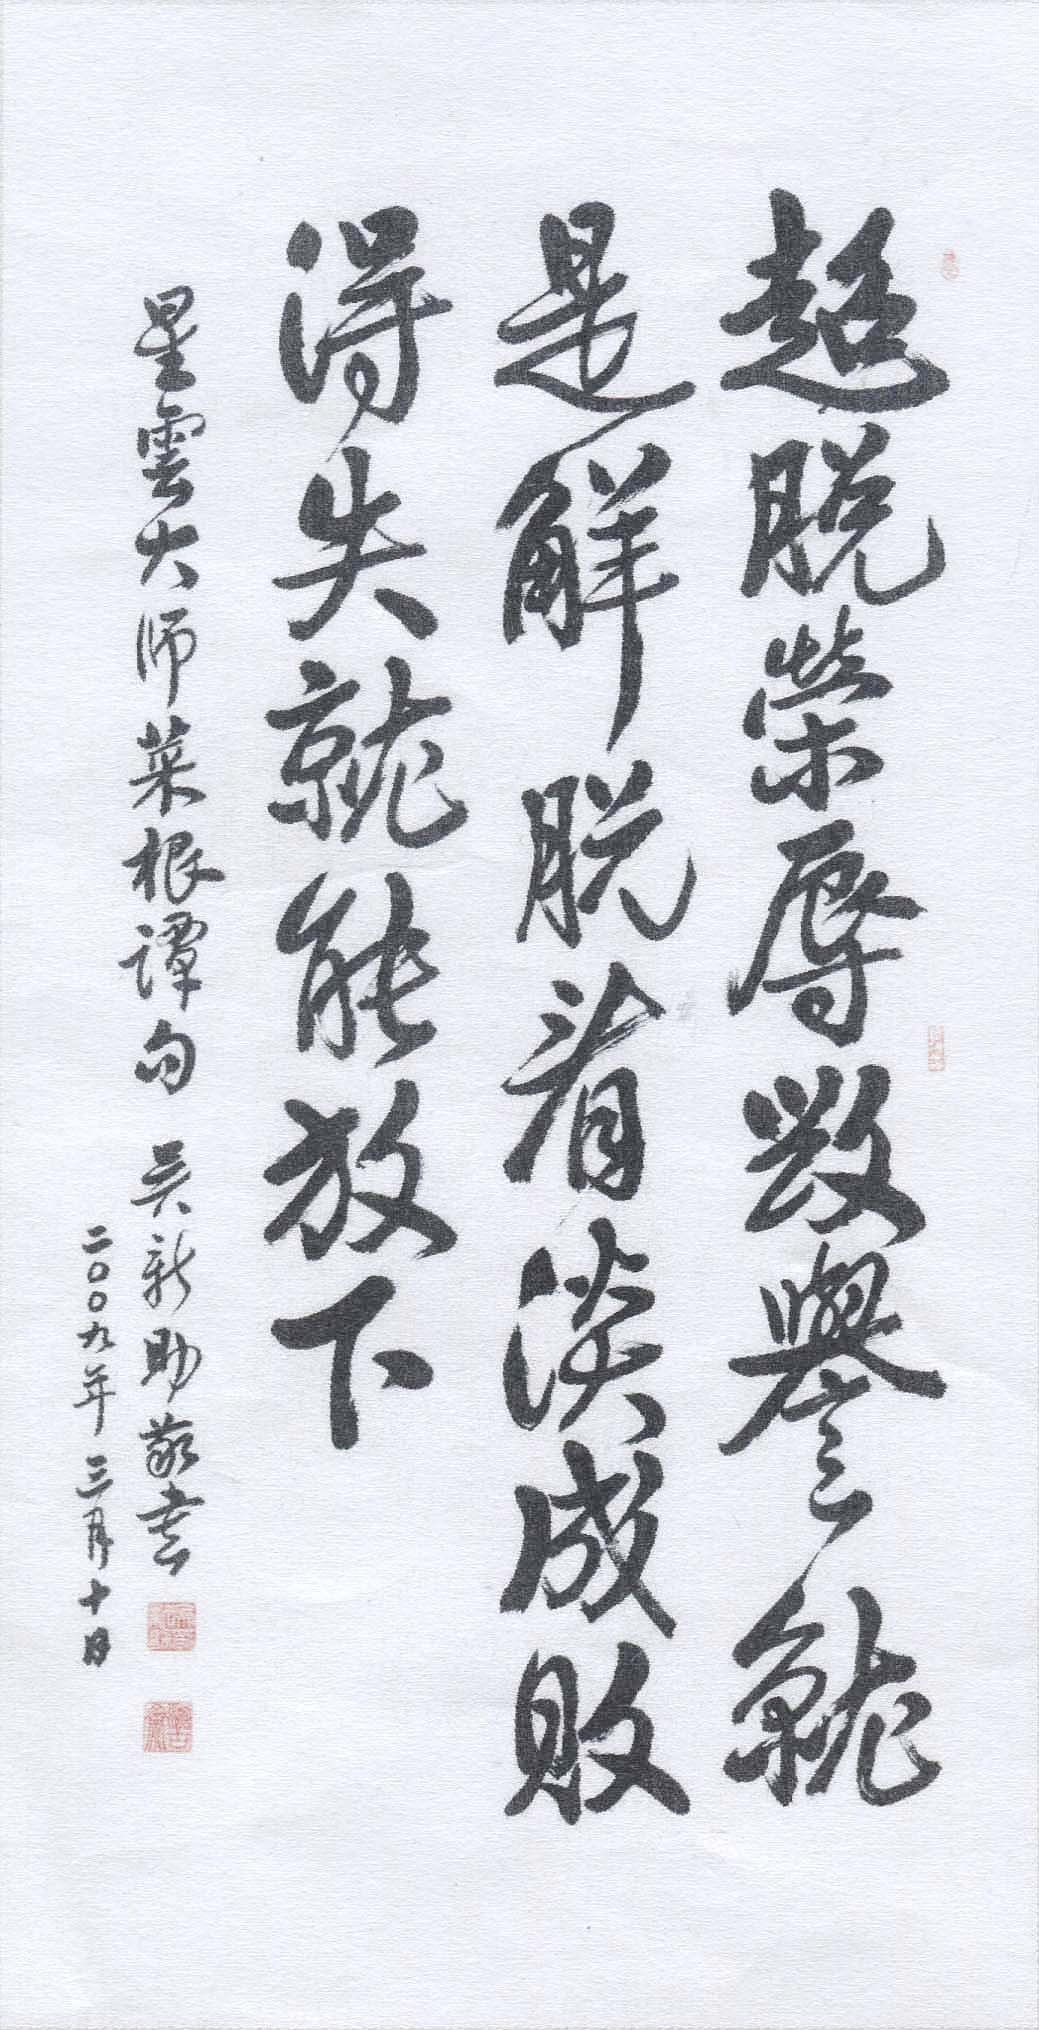 超脫榮辱毀譽就
是解脫看淡成敗
得失就能放下
星雲大师菜根譚句 吴新助敬書
二〇〇九年三月十日